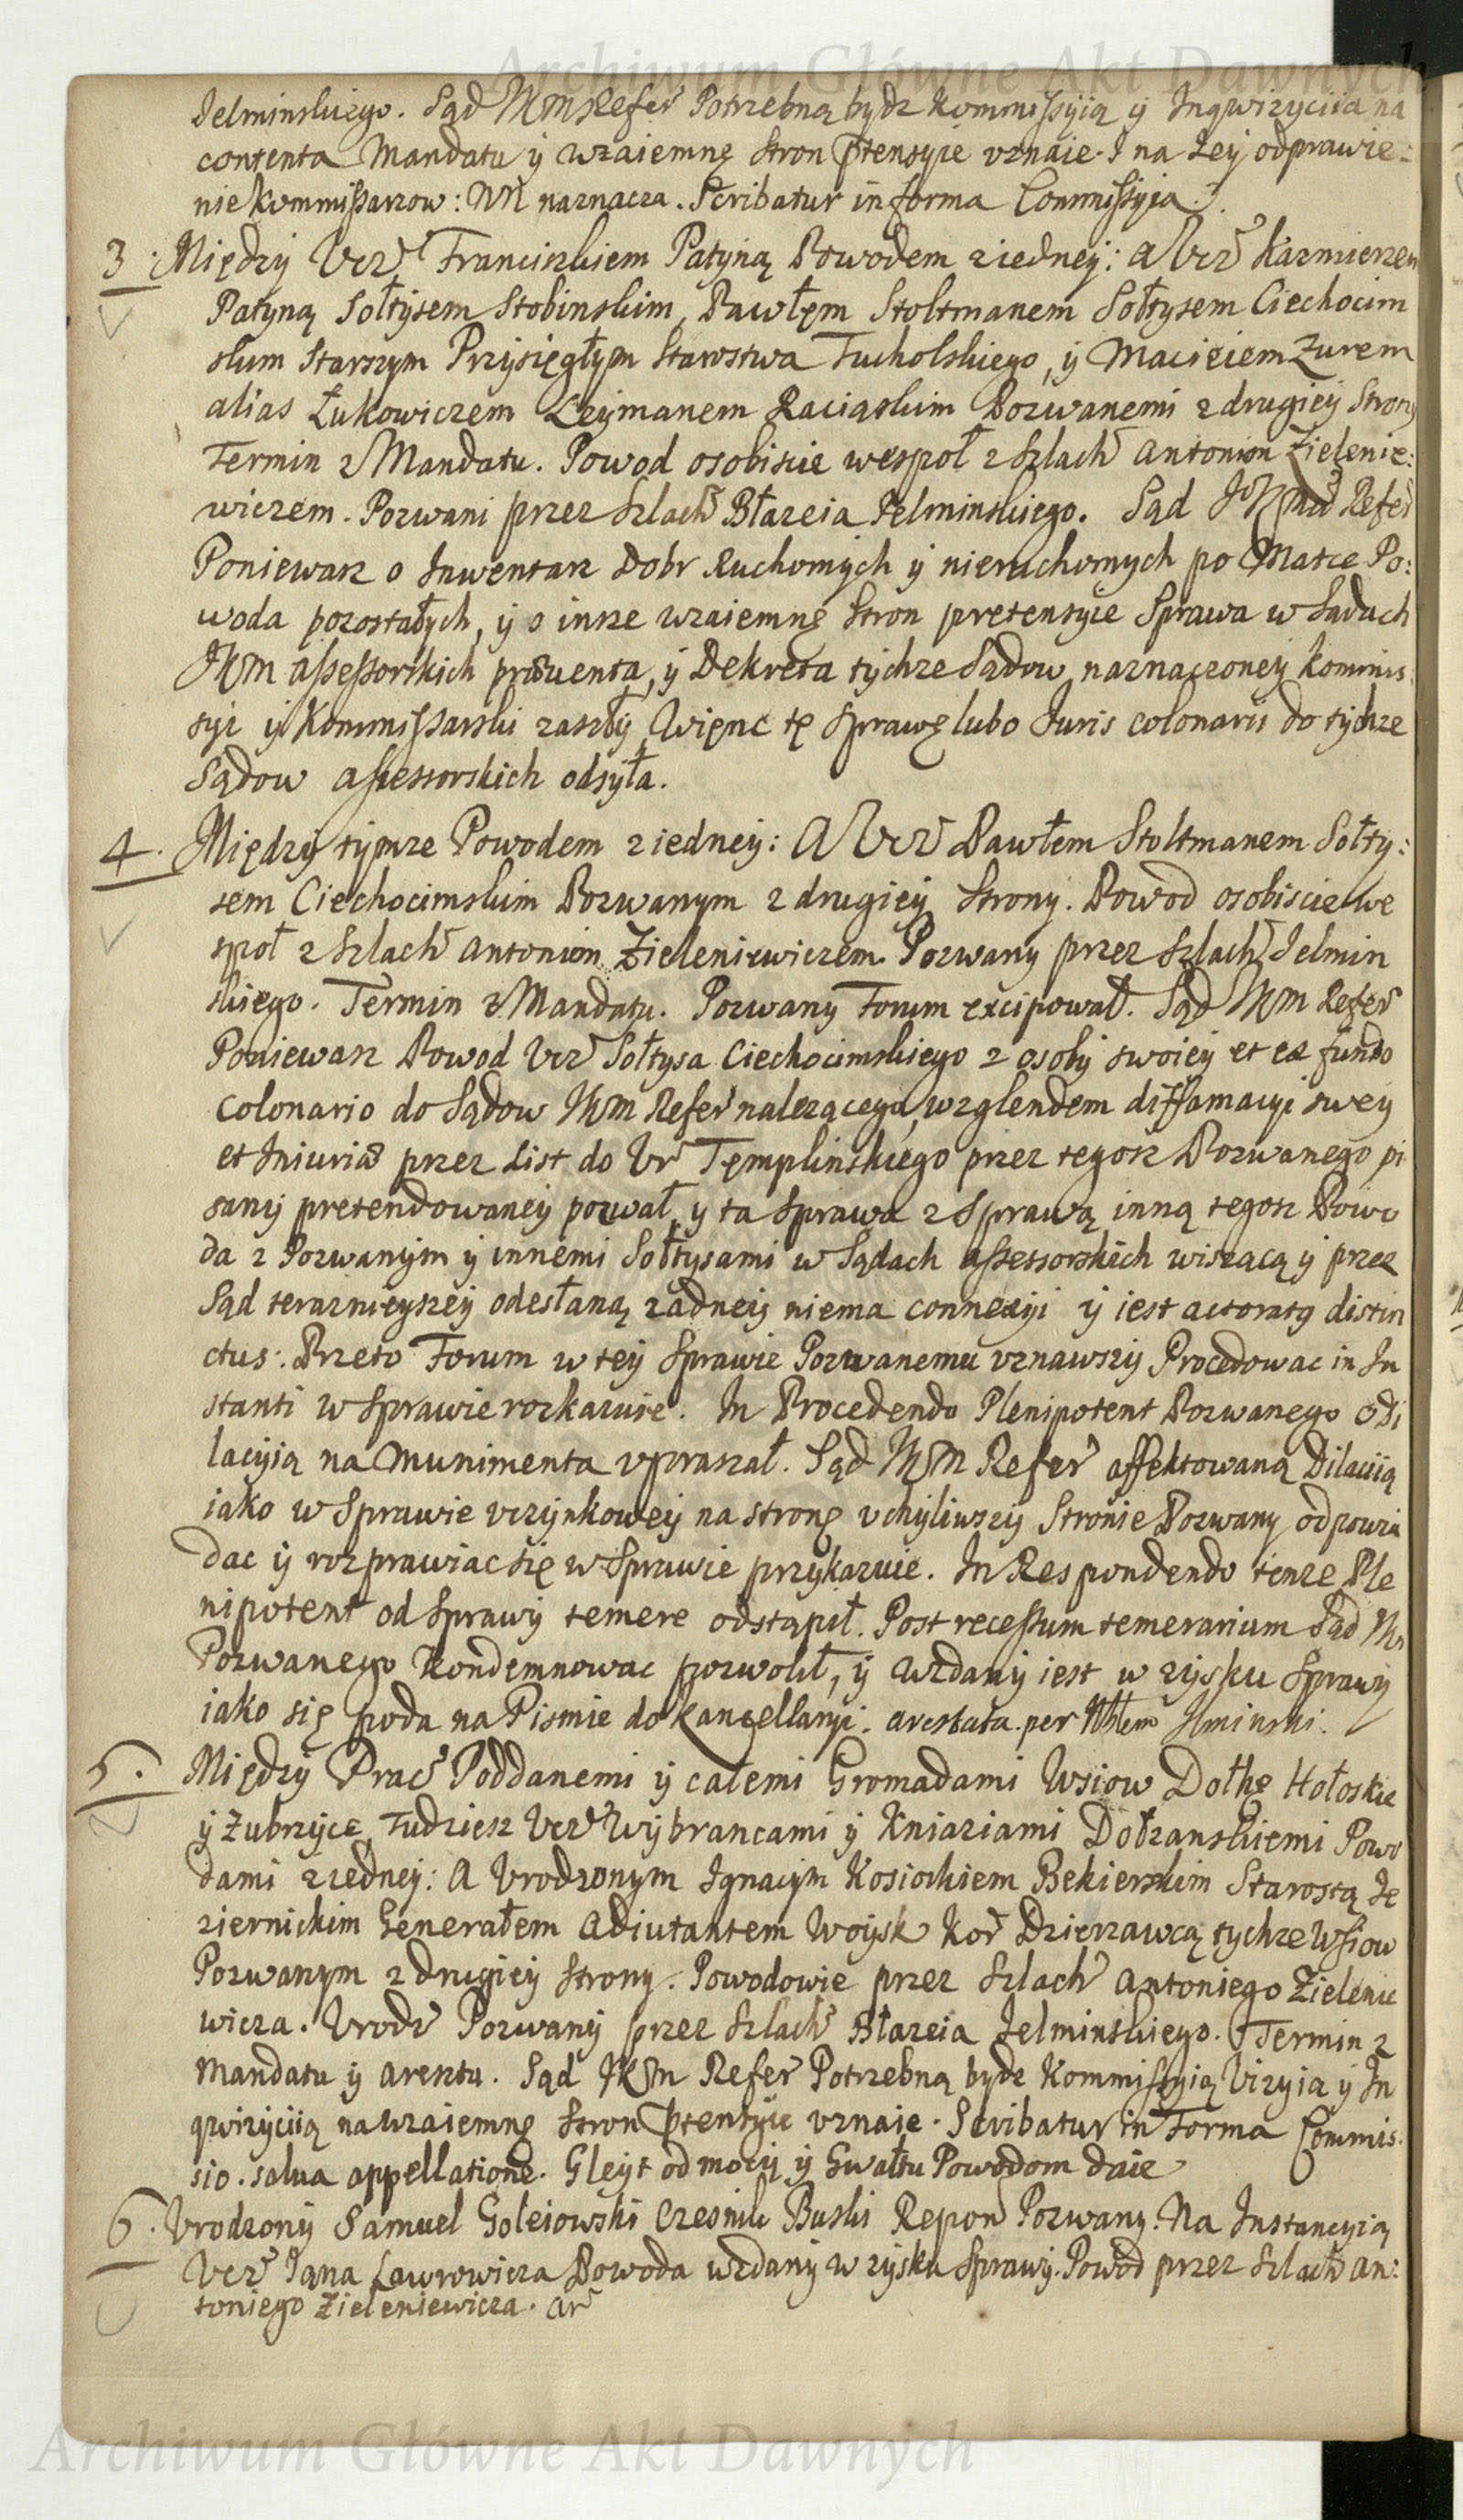 Archiwum Główne Akt Dawnych
Jelminskiego. Sąd JKM Refer Potrzebną bydz Kommissyią y Inqwizyciia na
contenta Mandatu y wzaiemnę Stron ptensyie vznaie. I na Jey odprawie:
nie Kommissarzow: NN naznacza. Scribatur in forma Commissyia.
3. Między Ucz Franciszkiem Patyną Powodem z iedney: A Ucz Kazmierzem
Patyną Sołtysem Stobinskim, Pawłęm Stoltmanem Sołtysem Ciechocim
skim Starszym Przysięgłym Starostwa Tucholskiego, y Macieiem Zurem
alias Łukowiczem Leymanem Raciąskim Pozwanemi z drugiey Strony
Termin z Mandatu. Powod osobiscie wespoł z Szlach Antonim Zielenie:
wiczem. Pozwani przez Szlach Błazeia Jelminskiego. Sąd JKMci Refer
Poniewasz o Inwentarz Dobr Ruchomych y nieruchomych po Matce Po:
woda pozostałych, y o insze wzaiemnę Stron pretensyie Sprawa w Sadach
JKM assessorskich prawenta, y Dekreta tychze Sądow, naznaczoney Kommis:
syi y Kommissarski zaszły, Więnc tę Sprawę lubo Juris colonarii do tychze
Sądow assessorskich odsyła.
4. Między tymze Powodem z iedney: A Ucz Pawłem Stoltmanem Sołty:
sem Ciechocimskim Pozwanym z drugiey Strony. Powod osobiscie we
społ z Szlach Antonim Zieleniewiczem. Pozwany przez Szlach Jelmin
skiego. Termin z Mandatu. Pozwany Forum excipował. Sąd JKM Refer
Poniewasz Powod Ucz Sołtysa Ciechocimskiego z osoby swoiey et ex fundo
colonario do Sądow JKM Refer nalezącego, wzglendem diffamacyi swey
et Iniurias przez List do Ur Tęmplinskiego przez tegosz Pozwanego pi
sany pretendowaney pozwał, y ta Sprawa z Sprawą inną tegosz Powo
da z Pozwanym y innemi Sołtysami w Sądach assessorskich wiszącą y przez
Sąd terazniеyszey odesłaną zadney niema connexyi y iest actoraty distin
ctus. Przeto Forum w tey Sprawie Pozwanemu vznawszy Procedowac in In
stanti w Sprawie rozkazuie. In Procedendo Plenipotent Pozwanego o Di
lacyią na munimenta vpraszał. Sąd JKM Refer affektowaną Dilacyią
iako w Sprawie vczynkowey na stronę vchyliwszy Stronie Pozwany odpowia
dac y rozprawiac się w Sprawie przykazuie. In Respondendo tenze Ple
nipotent od Sprawy temere odstąpił. Post recessum temerarium Sąd JKM
Pozwanego Kondemnowac pozwolił, y wzdany iest w zysku Sprawy
iako się poda na Pismie do Kancellaryi. arestata per Nblem Jlminski.
5. Między Prac Poddanemi y całemi Gromadami Wsiow Dołhe Hołoskie
y Zubrzyce, Tudziesz Ucz Wybrancami y Kniaziami Dołzanskiemi Powo
dami z iedney: A Urodzonym Ignacym Kosiorkiem Bekierskim Starostą Je
ziernickim Generałem Adiutantem Woysk Kor Dzierzawcą tychze Wsiow
Pozwanym z drugiey Strony. Powodowie przez Szlach Antoniego Zielenie
wicza. Urodz Pozwany przez Szlach Błazeia Jelminskiego. Termin z
Mandatu y aresztu. Sąd JKM Refer Potrzebną bydz Kommissyią Vizyia y In
qwizyciią na wzaiemnę Stron ptensyie vznaie. Scribatur in Forma Commis:
sio. salua appellatione. Gleyt od mocy y Gwałtu Powodom daie
6. Urodzony Samuel Goleiowski Czesnik Buski Repon Pozwany. Na Instancyią
Ucz Jana Ławrowicza Powoda wzdany w zysku Sprawy. Powod przez Szlach An:
toniego Zieleniewicza. ar
Archiwum Główne Akt Dawnych